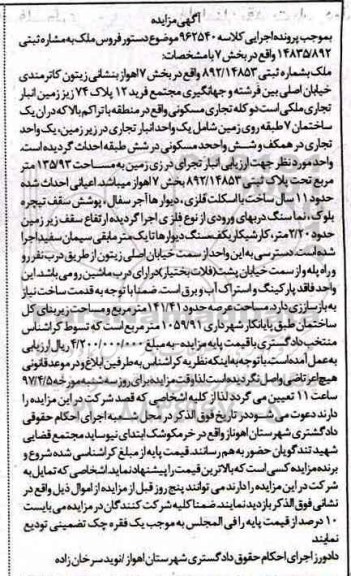 آگهی مزایده
بموجب پرونده اجرایی کلاسه ۹۶۲۵۴۰ موضوع دستور فروش ملک به مشاره ثبتی
۱۴۸۳۵/۸۹۲ واقع در بخش ۷ با مشخصات:
ملک بشماره ثبتی ۸۹۲/۱۴۸۵۳ واقع در بخش ۷ اهواز بنشانی زیتون کارمندی
خیابان اصلی بین فرشته و جهانگیری مجتمع فرید ۱۲ پلاک ۷۴ زیر زمین انبار
تجاری ملکی است دو کله تجاری مسکونی واقع در منطقه با تراکم بالا که در ان یک
ساختمان ۷ طبقه روی زمین شامل یک واحد انبار تجاری در زیر زمین، یک واحد
تجاری در همکف و شش واححد مسکونی در شش طبقه احداث گردیده است.
واحد مورد نظر جهت ارزیابی انبار تجرای در زی زمین به مساحت ۱۳۵/۹۳ متر
مربع تحت پلاک ثبتی ۸۹۲/۱۴۸۵۳ بخش ۷ اهواز میباشد اعیانی احداث شده
حدود ۱۱ سال ساخت با اسکلت فلزی، دیوار ها آجر سفال، پوشش سقف تیرچه
بلوک، نما سنگ دربهای ورودی از نوع فلزی اجرا گردیده ارتفاع سقف زیر زمین
حدود ۲/۲۰ متر، کار شیکار یکف سنگ دیوار ها تا یک متر مابقی سیمان سفید اجرا
شده است. دسترسی به این واحد از سمت خیابان اصلی زیتون از طریق درب نفر رو
و راه پله و از سمت خیابان پشت (فلات بختیار) درارای درب ماشین رو می باشد. این
واحد فاقد پارکینگ و استراک آب و برق است. ضمنا با توجه به قدمت ساخت نیاز
به باز سازی دارد. مساحت عرصه حدود ۱۴۱/۴۱ متر مربع و مساحت زیر بنای کل
ساختمان طبق پایانکار شهرداری ۱۰۵۹/۹۱ متر مربع است که تسوط کراشناس
منتخب دادگستری با قیمت پایه مزایده -به مبلغ ۴/۲۰۰/۰۰۰/۰۰۰ ریال ارزیابی
به عمل آمده است. با توجه به اینکه نظریه کراشناس به طرفین ابلاغ و در موعد قانونی
هیچ اعتراضی واصل نگردیده است لذا وقت مزایده برای روز سه شنبه مورخه ۹۷/۴/۵
ساعت ۱۱ تعیین می گردد لذا از کلیه اشخاصی که قصد شرکت در این مزایده را
دارند دعوت می شود در تاریخ فوق الذکر در محل شعبه اجرای احکام حقوقی
دادگستری شهرستان اهوناز واقع در خرمکوشک ابتدای نیوساید مجتمع قضایی
شهید تندگویان حضور به هم رسانند. قیمت پایه از مبلغ کراشناسی شده شروع و
برنده مزایده کسی است که بالاترین قیمت را پیشنهاد نماید اشخاصی که تمایل به
شرکت در این مزایده را دارند می توانند پنج روز قبل از مزایده از اموال ذیل واقع در
نشانی فوق الذکر بازدید نمایند. ضمنا کلیه شرکت کنندگان در مزایده می بایست
۱۰ درصد از قیمت پایه را فی المجلس به موجب یک فقره چک تضمینی تودیع
نمایند
دادورز اجرای احکام حقوق دادگستری شهرستان اهواز /نوید سرخان زاده